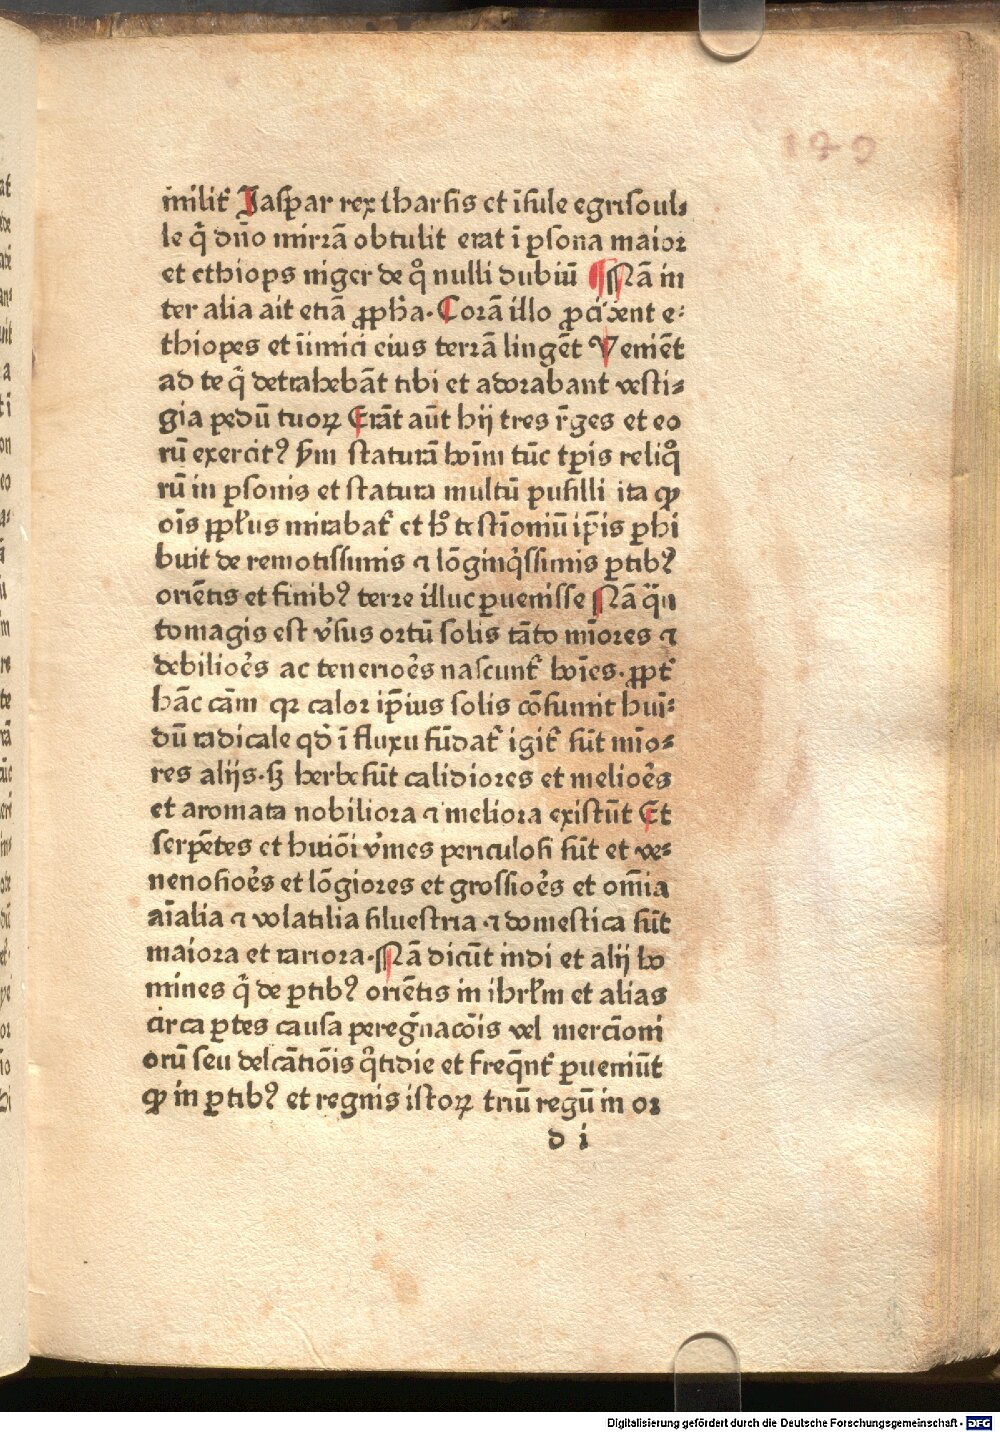 179
milit̄ Jaſpar rex tharſis et īſule egriſoul⸗
le q̄ dn̄o mirrā obtulit erat ī ꝑſona maior
et ethiops niger de q̊ nulli dubiū Nā in
ter alia ait etiā ꝓph̄a. Corā illo ꝓcidēnt e⸗
thiopes et īimici eius terrā lingēt Veniēt
ad te q̄ detrahebāt tibi et adorabant veſti⸗
gia pedū tuoꝝ Erāt aūt hij tres r̄ges et eo
rū exercitꝰ ẜm ſtaturā hoīm tūc tꝑis reliq̊
rū in ꝑſonis et ſtatura multū puſilli ita ꝙ
oīs ppl̄us mirabat̄ et h̊ teſtīoniū ip̄is ꝑhi
buit de remotiſſimis ⁊ lōginq̇ſſimis ꝑtibꝰ
oriētis et finibꝰ terre illuc ꝑueniſſe Nā q̄n
tomagis eſt v̓ſus ortū ſolis tāto mīores ⁊
debilioe̓s ac tenerioe̓s naſcunt̄ hoīes. ꝓpt̄
hāc cām qꝛ calor ip̄ius ſolis cōſumit hui⸗
dū radicale qd̄ ī fluxu fūdat̄ igit̄ ſūt mīo⸗
res alijs. ſꝫ herbe ſūt calidiores et melioe̓s
et aromata nobiliora ⁊ meliora exiſtūt Et
ſerpētes et huiōi v̓mes periculoſi ſūt et ve⸗
nenoſioe̓s et lōgiores et groſſioe̓s et om̄ia
aīalia ⁊ volatilia ſilueſtria ⁊ domeſtica ſūt
maiora et rariora. Nā dicūt indi et alij ho
mines q̄ de ꝑtibꝰ oriētis in ihrl̄m et alias
circa ꝑtes cauſa peregn̄acōis vel mercīoni
orū ſeu delcātiōis q̄tidie et freq̄nt̄ ꝑueniūt
ꝙ in ꝑtibꝰ et regnis iſtoꝝ triū regū in or
d i
Digitalisierung gefördert durch die Deutsche Forschungsgemeinschaft - DFG